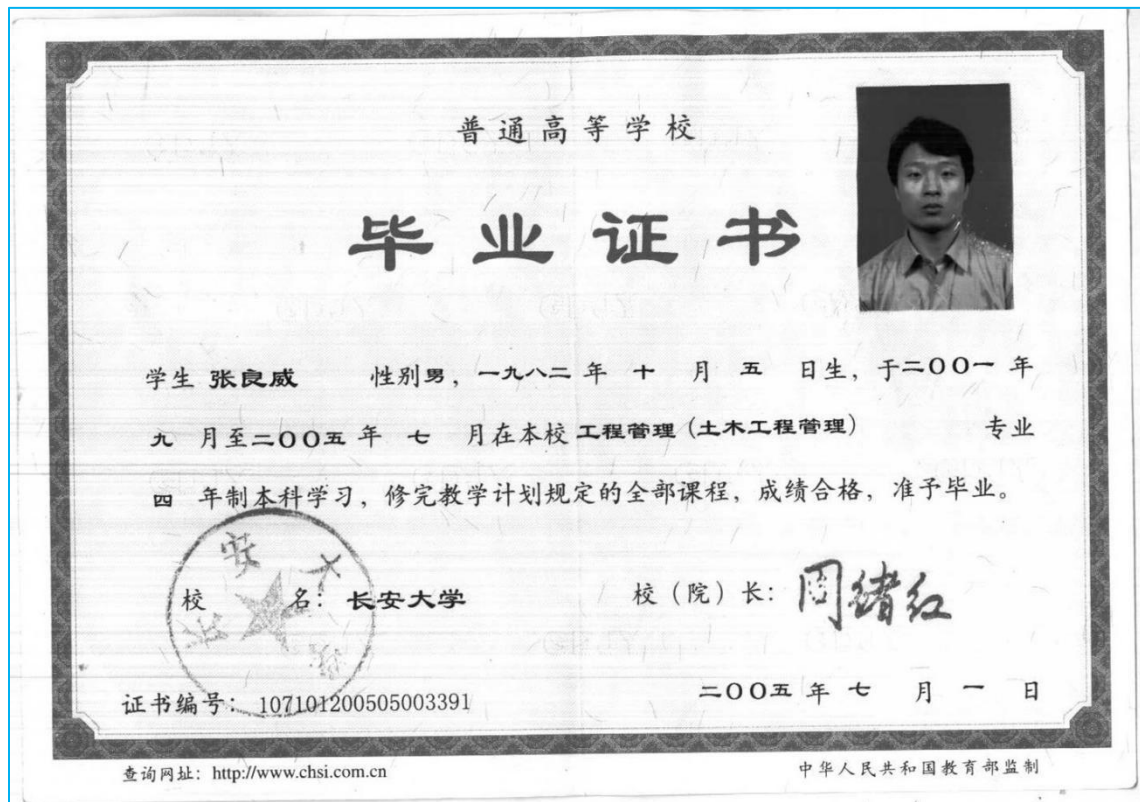 普通高等学校
毕业证书
学生 张良威 性别男，一九八二 年 十 月 五 日生，于二〇〇一 年
九 月至二〇〇五 年 七 月在本校 工程管理（土木工程管理） 专业
四 年制本科学习，修完教学计划规定的全部课程，成绩合格，准予毕业。
长安大学
校 名：长安大学 校（院）长：周绪红
证书编号：107101200505003391 二〇〇五 年 七 月 一 日
查询网址：http://www.chsi.com.cn 中华人民共和国教育部监制